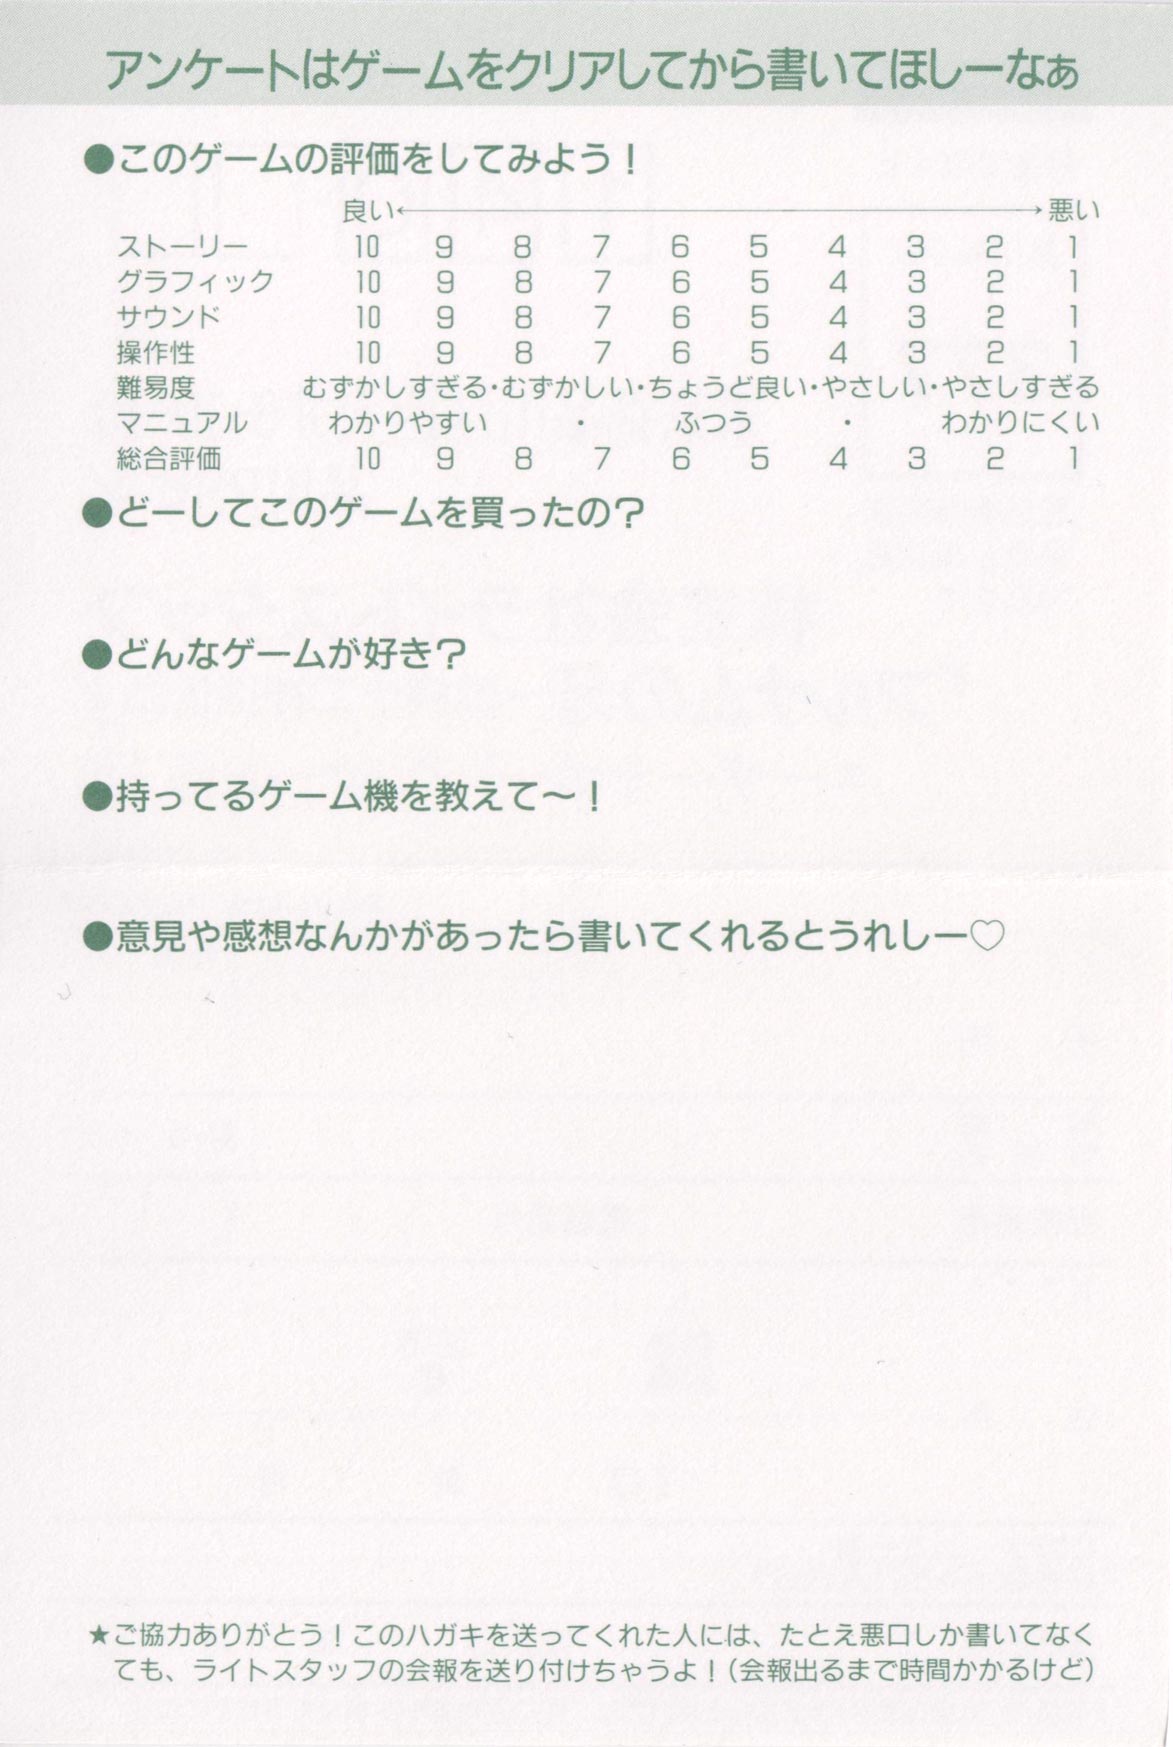 アンケートはゲームをクリアしてから書いてほしーなぁ
●このゲームの評価をしてみよう！
良い←→悪い
ストーリー 10 9 8 7 6 5 4 3 2 1
グラフィック 10 9 8 7 6 5 4 3 2 1
サウンド 10 9 8 7 6 5 4 3 2 1
操作性 10 9 8 7 6 5 4 3 2 1
難易度 むずかしすぎる・むずかしい・ちょうど良い・やさしい・やさしすぎる
マニュアル わかりやすい ・ ふつう ・ わかりにくい
総合評価 10 9 8 7 6 5 4 3 2 1
●どーしてこのゲームを買ったの？
●どんなゲームが好き？
●持ってるゲーム機を教えて～！
●意見や感想なんかがあったら書いてくれるとうれしー♡
★ご協力ありがとう！このハガキを送ってくれた人には、たとえ悪口しか書いてなく
ても、ライトスタッフの会報を送り付けちゃうよ！（会報出るまで時間かかるけど）